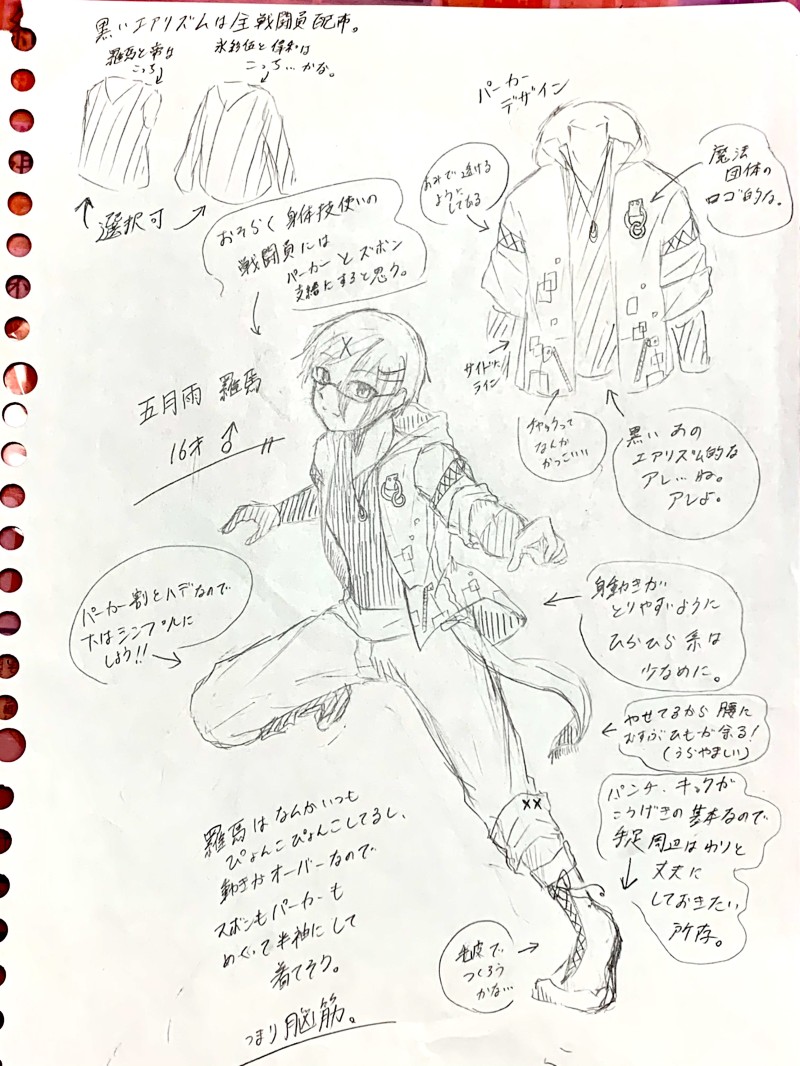 黒いエアリズムは全戦闘員配布。
羅馬と常は
こっち
永彩伍と侍和は
こっち…かな。
選択可
おそらく身体技使いの
戦闘員には
パーカーとズボン
支給にすると思う。
パーカー
デザイン
あみで透ける
ように
してある
魔法
団体の
ロゴ的な。
サイドに
ライン
チャックって
なんか
かっこいい
黒いあの
エアリズム的な
アレ…ね。
アレよ。
五月雨 羅馬
16才 ♂
パーカー割とハデなので
下はシンプルに
しよう!!
身動きが
とりやすいように
ひらひら系は
少なめに。
やせてるから腰に
むすぶひもが余る!
(うらやましい)
パンチ、キックが
こうげきの基本なので
手足周辺はわりと
丈夫に
しておきたい
所存。
毛皮で
つくろう
かな…
羅馬はなんかいつも
ぴょんこぴょんこしてるし、
動きがオーバーなので
ズボンもパーカーも
めくって半袖にして
着てそう。
つまり脳筋。